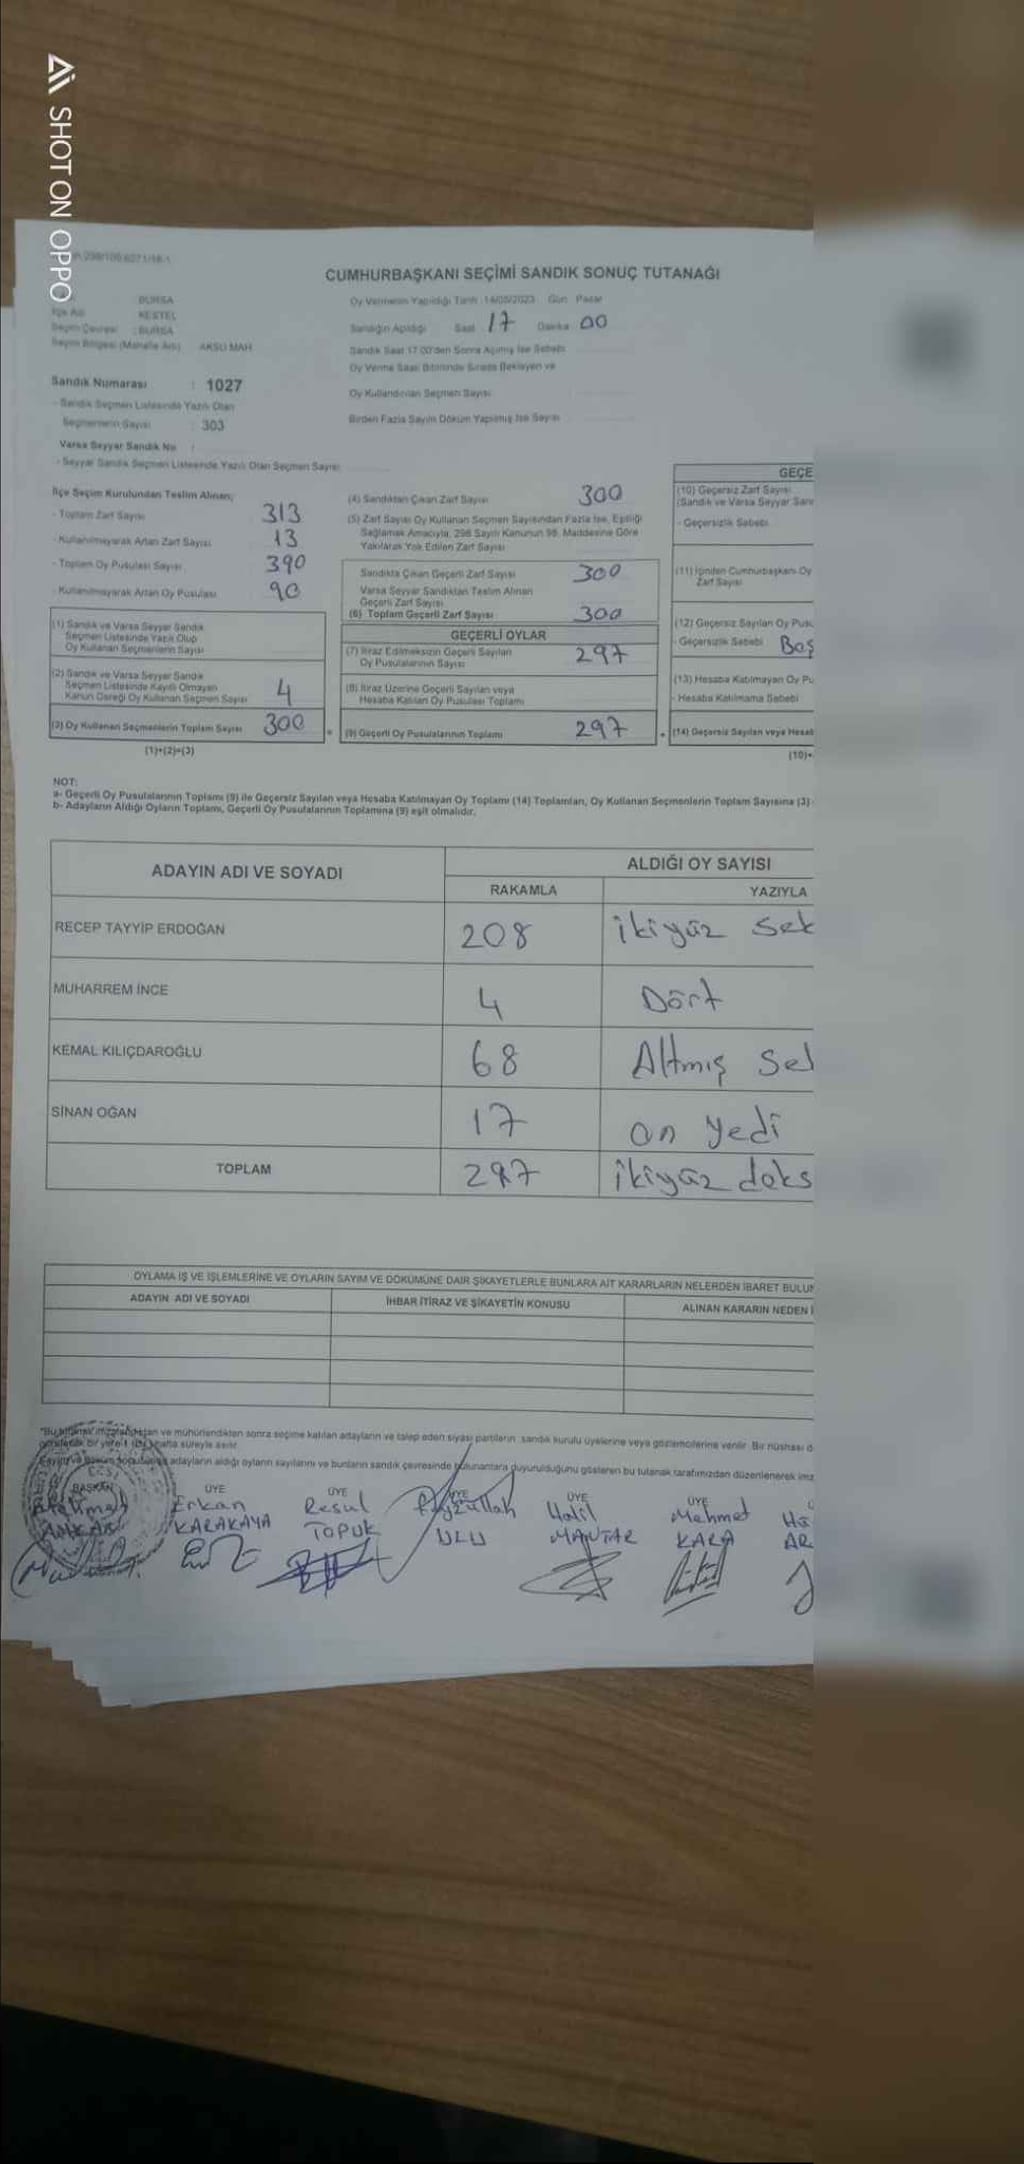 SHOT ON OPPO
CUMHURBAŞKANI SEÇİMİ SANDIK SONUÇ TUTANAĞI
BURSA
İlçe Adı KESTEL
Seçim Çevresi : BURSA
Seçim Bölgesi (Mahalle Adı) AKSU MAH
Oy Vermenin Yapıldığı Tarih 14/05/2023 Gün Pazar
Sandığın Açıldığı Saat 17 Dakika 00
Sandık Saat 17.00'den Sonra Açılmış İse Sebebi
Oy Verme Saati Bitiminde Sırada Bekleyen ve
Oy Kullandırılan Seçmen Sayısı
Birden Fazla Sayım Döküm Yapılmış İse Sayısı
Sandık Numarası : 1027
- Sandık Seçmen Listesinde Yazılı Olan
Seçmenlerin Sayısı : 303
Varsa Seyyar Sandık No :
- Seyyar Sandık Seçmen Listesinde Yazılı Olan Seçmen Sayısı
İlçe Seçim Kurulundan Teslim Alınan;
- Toplam Zarf Sayısı 313
- Kullanılmayarak Artan Zarf Sayısı 13
- Toplam Oy Pusulası Sayısı 390
- Kullanılmayarak Artan Oy Pusulası 90
(1) Sandık ve Varsa Seyyar Sandık
Seçmen Listesinde Yazılı Olup
Oy Kullanan Seçmenlerin Sayısı
(2) Sandık ve Varsa Seyyar Sandık
Seçmen Listesinde Kayıtlı Olmayan
Kanun Gereği Oy Kullanan Seçmen Sayısı 4
(3) Oy Kullanan Seçmenlerin Toplam Sayısı 300
(1)+(2)=(3)
(4) Sandıktan Çıkan Zarf Sayısı 300
(5) Zarf Sayısı Oy Kullanan Seçmen Sayısından Fazla İse, Eşitliği
Sağlamak Amacıyla, 298 Sayılı Kanunun 98. Maddesine Göre
Yakılarak Yok Edilen Zarf Sayısı
Sandıkta Çıkan Geçerli Zarf Sayısı 300
Varsa Seyyar Sandıktan Teslim Alınan
Geçerli Zarf Sayısı
(6) Toplam Geçerli Zarf Sayısı 300
GEÇERLİ OYLAR
(7) İtiraz Edilmeksizin Geçerli Sayılan
Oy Pusulalarının Sayısı 297
(8) İtiraz Üzerine Geçerli Sayılan veya
Hesaba Katılan Oy Pusulası Toplamı
= (9) Geçerli Oy Pusulalarının Toplamı 297
GEÇE
(10) Geçersiz Zarf Sayısı
(Sandık ve Varsa Seyyar San
- Geçersizlik Sebebi
(11) İçinden Cumhurbaşkanı Oy
Zarf Sayısı
(12) Geçersiz Sayılan Oy Pusu
- Geçersizlik Sebebi Boş
(13) Hesaba Katılmayan Oy Pu
- Hesaba Katılmama Sebebi
+ (14) Geçersiz Sayılan veya Hesat
(10)+
NOT:
a- Geçerli Oy Pusulalarının Toplamı (9) ile Geçersiz Sayılan veya Hesaba Katılmayan Oy Toplamı (14) Toplamları, Oy Kullanan Seçmenlerin Toplam Sayısına (3)
b- Adayların Aldığı Oyların Toplamı, Geçerli Oy Pusulalarının Toplamına (9) eşit olmalıdır.
ADAYIN ADI VE SOYADI
ALDIĞI OY SAYISI
RAKAMLA YAZIYLA
RECEP TAYYİP ERDOĞAN 208 ikiyüz sek
MUHARREM İNCE 4 Dört
KEMAL KILIÇDAROĞLU 68 Altmış sek
SİNAN OĞAN 17 on yedi
TOPLAM 297 ikiyüz doks
OYLAMA İŞ VE İŞLEMLERİNE VE OYLARIN SAYIM VE DÖKÜMÜNE DAİR ŞİKAYETLERLE BUNLARA AİT KARARLARIN NELERDEN İBARET BULUN
ADAYIN ADI VE SOYADI İHBAR İTİRAZ VE ŞİKAYETİN KONUSU ALINAN KARARIN NEDEN İ
ve mühürlendikten sonra seçime katılan adayların ve talep eden siyasi partilerin sandık kurulu üyelerine veya gözlemcilerine verilir. Bir nüshası d
hafta süreyle asılır.
adayların aldığı oyların sayılarını ve bunların sandık çevresinde bulunanlara duyurulduğunu gösteren bu tutanak tarafımızdan düzenlenerek imz
BAŞKAN ÜYE ÜYE ÜYE ÜYE ÜYE
Erkan Resul Feyzullah Halil Mehmet
KARAKAYA TOPUK ULU MANTAR KARA AR